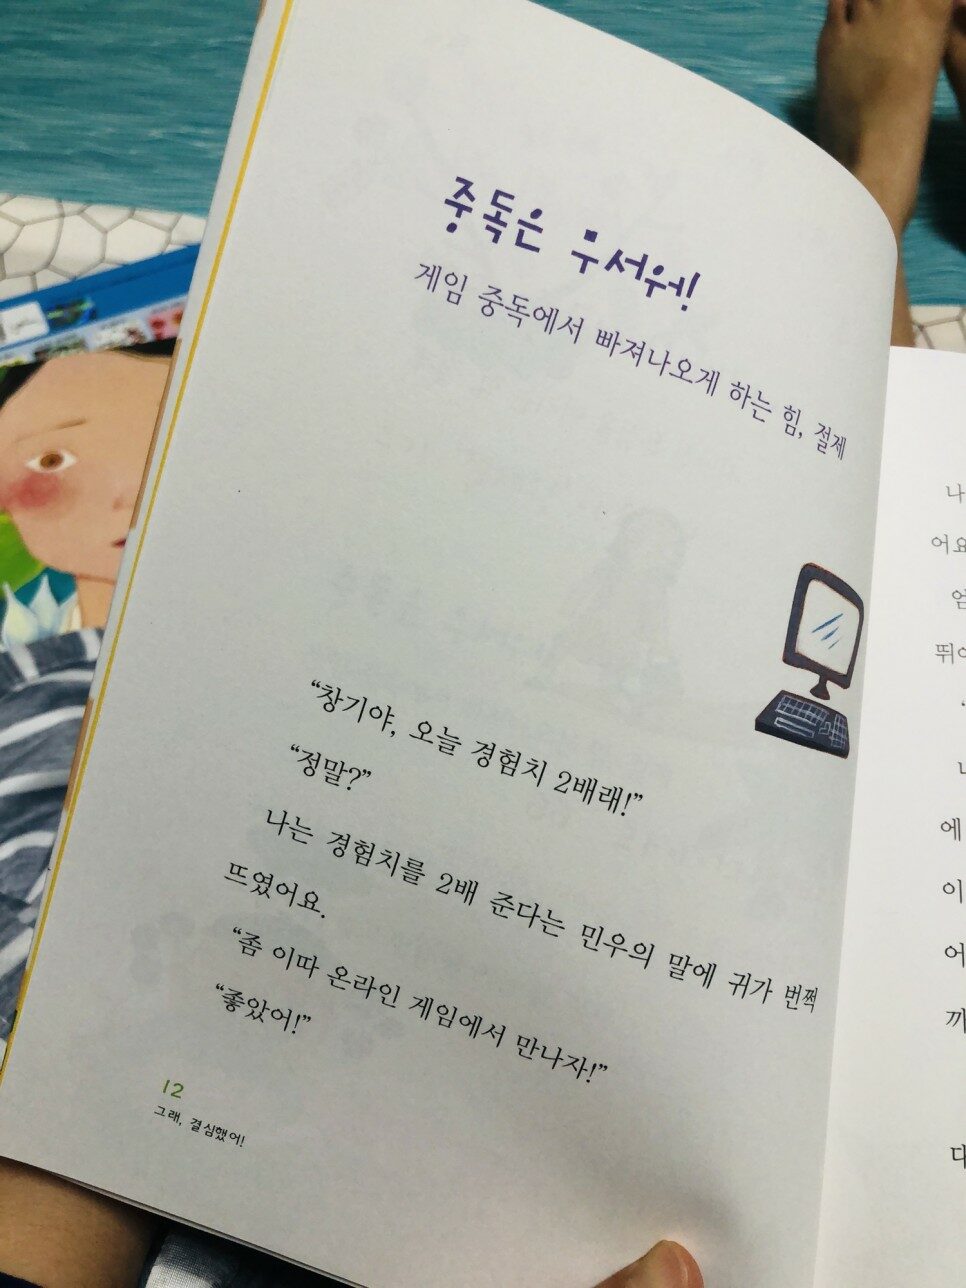 중독은 무서워!
게임 중독에서 빠져나오게 하는 힘, 절제
“창기야, 오늘 경험치 2배래!”
“정말?”
나는 경험치를 2배 준다는 민우의 말에 귀가 번쩍
뜨였어요.
“좀 이따 온라인 게임에서 만나자!”
“좋았어!”
12
그래, 결심했어!
나
어요
엄
뛰어
에
이
어
끼
다